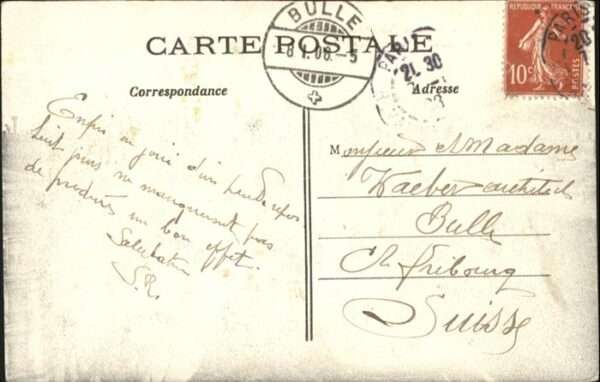 BULLE
8 V. 08.-5
CARTE POSTALE
PARIS
21. 30
PARIS
20
10c
POSTES
Correspondance
Adresse
Enfin au jour d'un peu de repos
huit jours ne manqueront pas
de produire un bon effet.
Salutation
S.R.
Monsieur & Madame
Waeber architecte
Bulle
Ct fribourg
Suisse